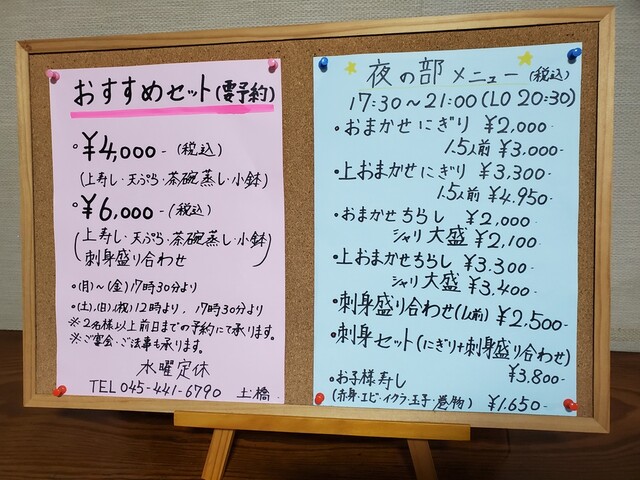 おすすめセット(要予約)
・¥4,000-(税込)
(上寿し・天ぷら・茶碗蒸し・小鉢)
・¥6,000-(税込)
(上寿し・天ぷら・茶碗蒸し・小鉢
刺身盛り合わせ)
・(月)~(金)17時30分より
・(土),(日),(祝)12時より、17時30分より
※2名様以上前日までの予約にて承ります。
※ご宴会・ご法事も承ります。
水曜定休
TEL 045-441-6790 土橋
夜の部 メニュー(税込)
17:30~21:00(LO 20:30)
・おまかせにぎり ¥2,000-
1.5人前 ¥3,000-
・上おまかせにぎり ¥3,300-
1.5人前 ¥4,950-
・おまかせちらし ¥2,000-
シャリ大盛 ¥2,100-
・上おまかせちらし ¥3,300-
シャリ大盛 ¥3,400-
・刺身盛り合わせ(1人前) ¥2,500-
・刺身セット(にぎり+刺身盛り合わせ)
¥3,800-
・お子様寿し
(赤身・エビ・イクラ・玉子・巻物) ¥1,650-